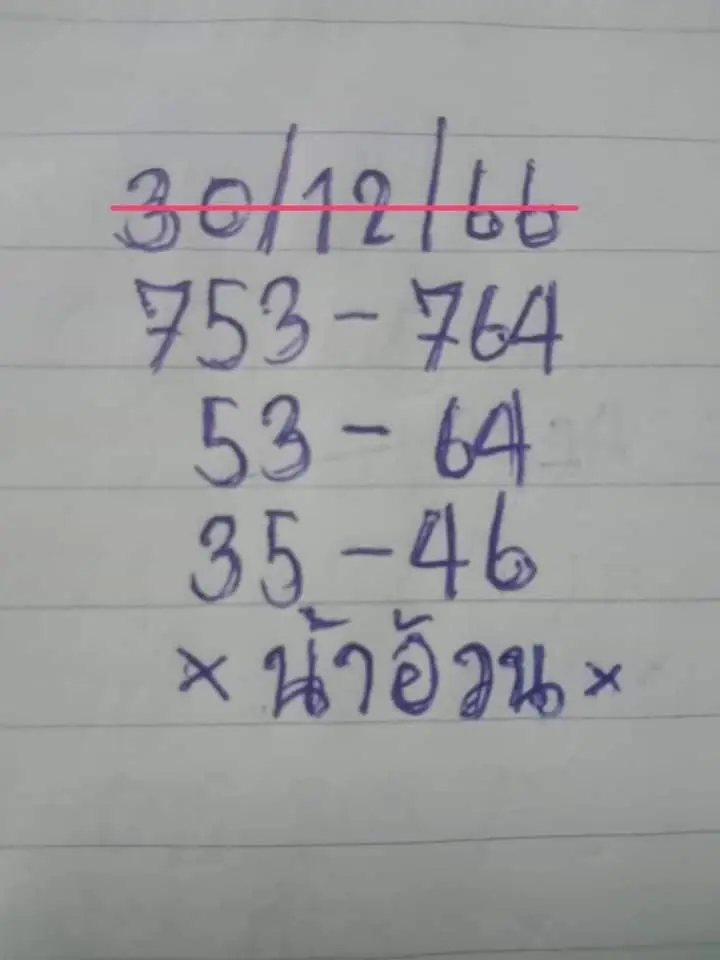 30/12/66
753-764
53-64
35-46
× น้าอ้วน ×